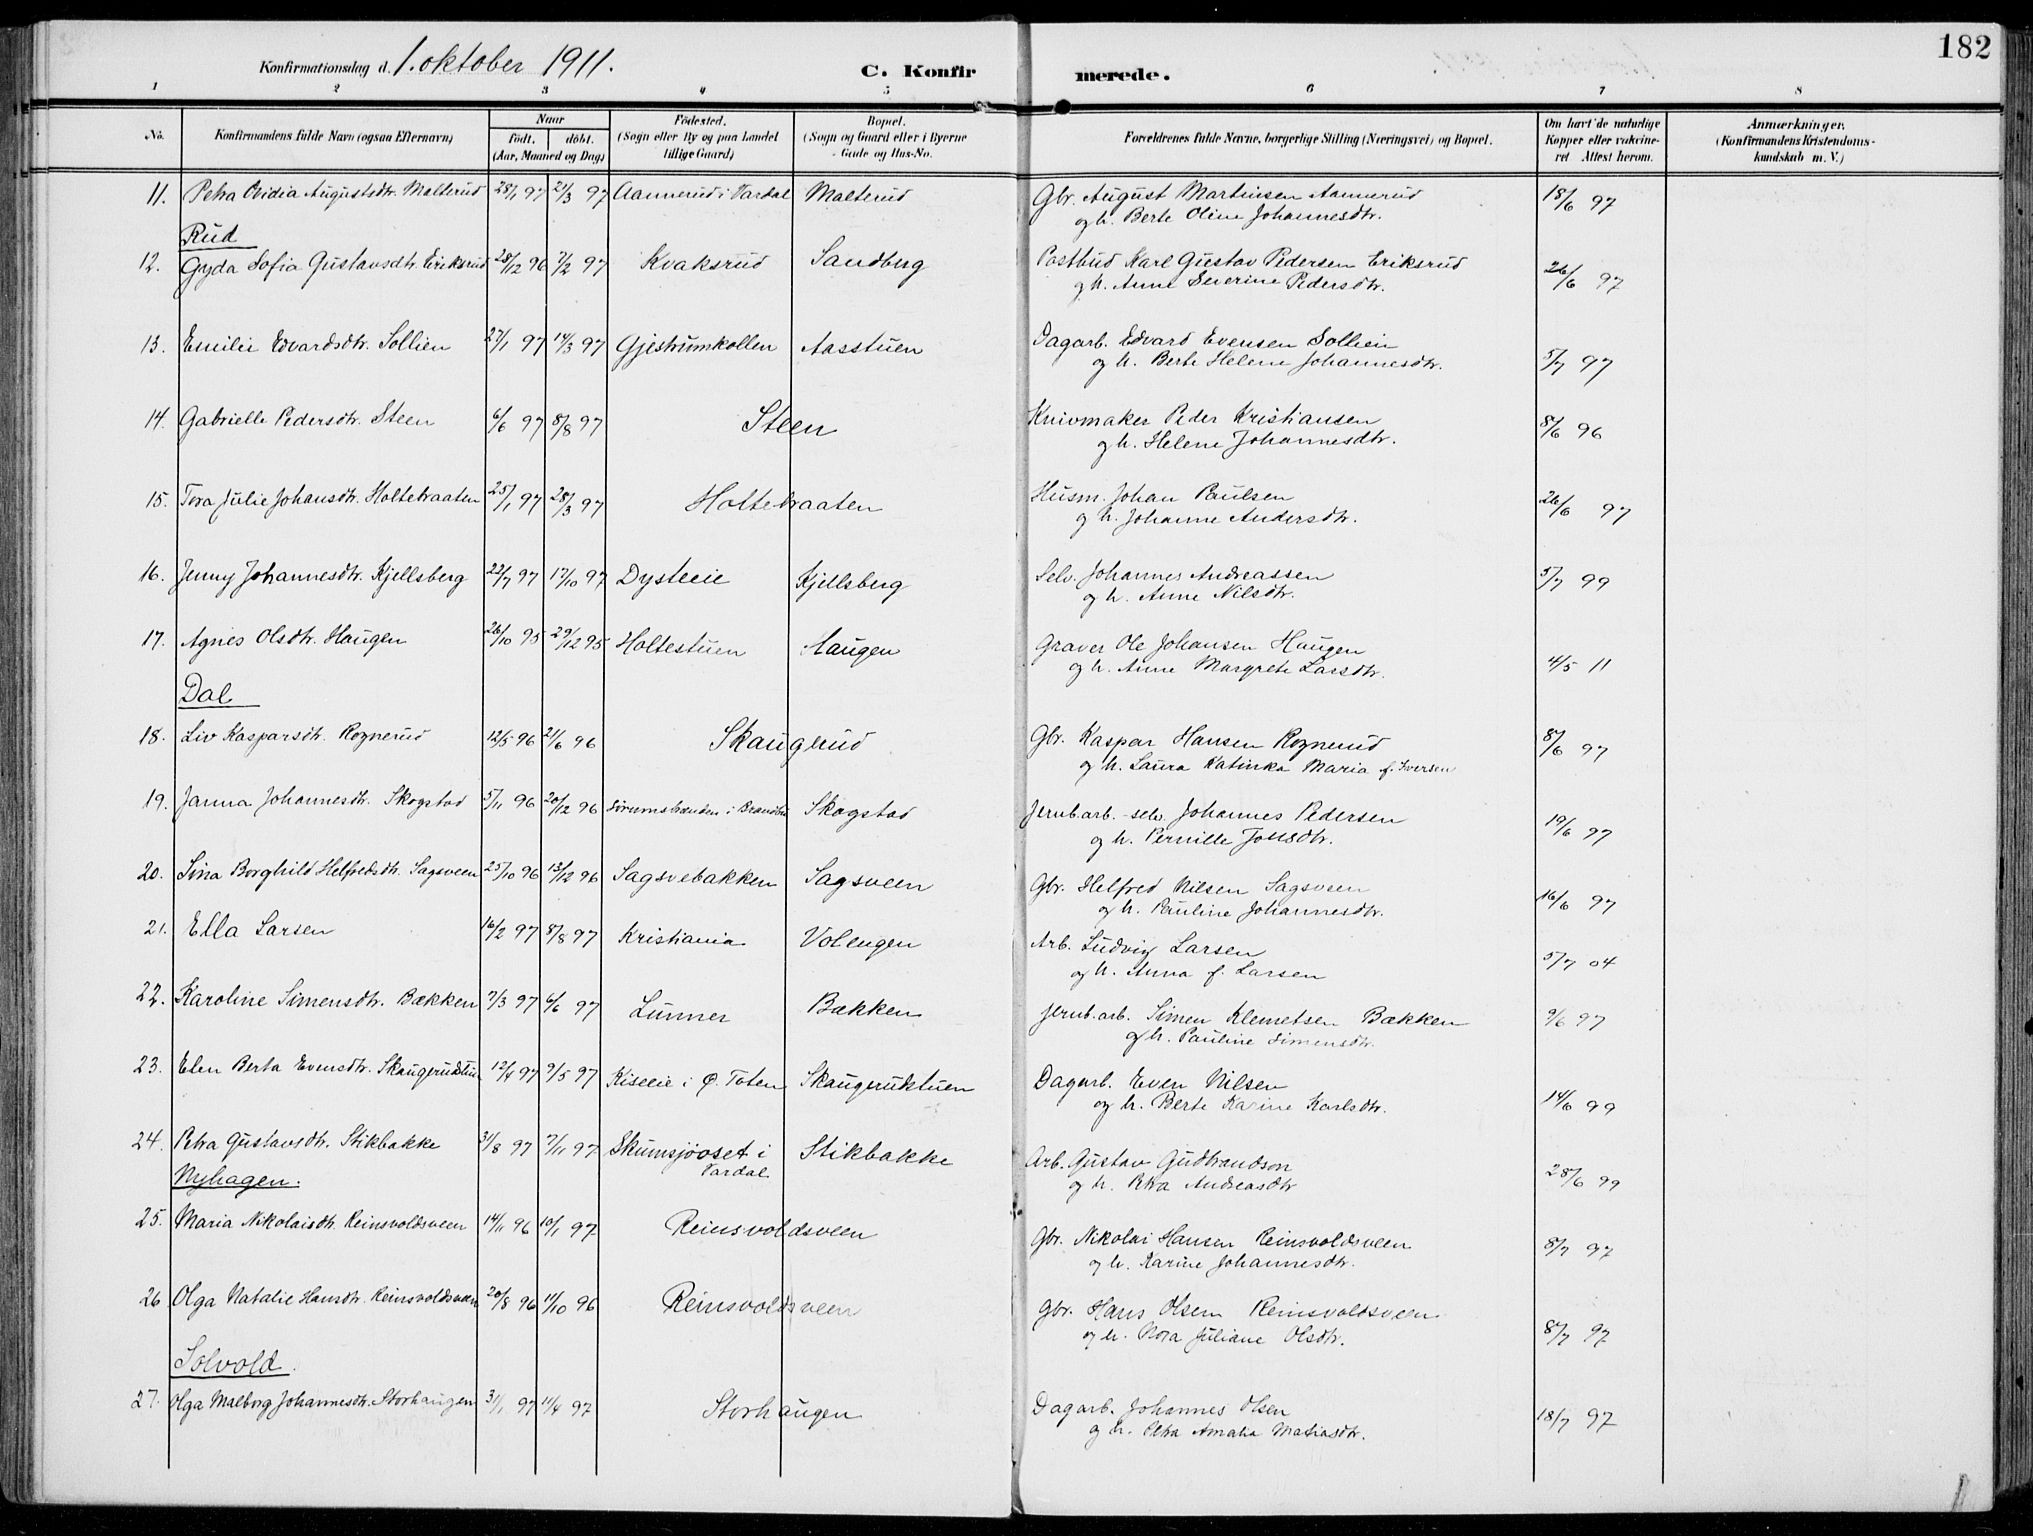 182
Konfirmationsdag d. 1. oktober 1911.
C. Konfirmerede.
1 2 3 4 5 6 7 8
No. Konfirmandens fulde Navn (ogsaa Efternavn) Naar født. døbt. (Aar, Maaned og Dag) Fødested. (Sogn eller By og paa Landet tillige Gaard) Bopæl. (Sogn og Gaard eller i Byerne Gade og Hus-No. Forældrenes fulde Navne, borgerlige Stilling (Næringsvei) og Bopæl. Om havt de naturlige Kopper eller vakcineret Attest herom. Anmærkninger. (Konfirmandens Kristendomskundskab m. V.)
11. Petra Ovidia Augustsdtr. Malterud 28/1 97 21/3 97 Aannerud i Vardal Malterud Gbr. August Martinsen Aannerud 18/6 97
og h. Berte Oline Johannesdtr.
Rud
12. Gyda Sofia Gustavsdtr. Eriksrud 28/12 96 7/2 97 Kvaksrud Sandberg Postbud Karl Gustav Pedersen Eriksrud 26/6 97
og h. Anne Severine Pedersdtr.
13. Emilie Edvardsdtr. Sollien 27/1 97 14/3 97 Gjestrumkollen Aasstuen Dagarb. Edvard Evensen Sollien 5/7 97
og h. Berte Helene Johannesdtr.
14. Gabrielle Pedersdtr. Steen 6/6 97 8/8 97 Steen Knivmaker Peder Kristiansen 8/6 96
og h. Helene Johannesdtr.
15. Tora Julie Johansdtr. Holtebraaten 25/1 97 28/3 97 Holtebraaten Husm. Johan Paulsen 26/6 97
og h. Johanne Andersdtr.
16. Jenny Johannesdtr. Kjellsberg 22/7 97 17/10 97 Dysteeie Kjellsberg Selv. Johannes Andreassen 5/7 99
og h. Anne Nilsdtr.
17. Agnes Olsdtr. Haugen 26/10 95 29/12 95 Holtestuen Haugen Graver Ole Johansen Haugen 4/5 11
og h. Anne Margrete Larsdtr.
Dal
18. Liv Kasparsdtr. Rognerud 12/5 96 21/6 96 Skaugerud Gbr. Kaspar Hansen Rognerud 8/6 97
og h. Laura Katinka Maria f. Iversen
19. Janna Johannesdtr. Skogstad 5/11 96 20/12 96 Sørumstranden i Brandbu Skogstad Jernb.arb. selv. Johannes Pedersen 19/6 97
og h. Pernille Jonsdtr.
20. Sina Borghild Helfredsdtr. Sagsveen 25/10 96 13/12 96 Sagsvebakken Sagsveen Gbr. Helfred Nilsen Sagsveen 16/6 97
og h. Pauline Johannesdtr.
21. Ella Larsen 16/2 97 8/8 97 Kristiania Volengen Arb. Ludvig Larsen 5/7 04
og h. Anna f. Larsen
22. Karoline Simensdtr. Bækken 7/3 97 6/6 97 Lunner Bækken Jernb.arb. Simen Klemetsen Bækken 9/6 97
og h. Pauline Simensdtr.
23. Elen Berta Evensdtr. Skaugerudstuen 12/4 97 9/5 97 Kiseeie i Ø. Toten Skaugerudstuen Dagarb. Even Nilsen 14/6 99
og h. Berte Karine Karlsdtr.
24. Petra Gustavsdtr. Stikbakke 31/8 97 7/11 97 Skumsjøoset i Vardal Stikbakke Arb. Gustav Gudbrandson 28/6 99
og h. Petra Andreasdtr
Nyhagen.
25. Maria Nikolaisdtr. Reinsvoldsveen 14/11 96 10/1 97 Reinsvoldsveen Gbr. Nikolai Hansen Reinsvoldsveen 8/7 97
og h. Karine Johannesdtr.
26 Olga Natalie Hansdtr. Reinsvoldsveen 20/8 96 11/10 96 Reinsvoldsveen Gbr. Hans Olsen Reinsvoldsveen 8/7 97
og h. Nora Juliane Olsdtr.
Solvold.
27. Olga Malborg Johannesdtr. Storhaugen 31/1 97 11/4 97 Storhaugen Dagarb. Johannes Olsen 18/7 97
og h. Petra Amalia Matiasdtr.